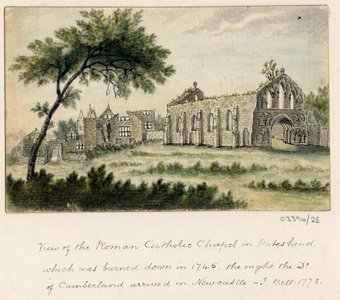 03396/28
View of the Roman Catholic Chapel in Gateshead,
which was burned down in 1745, the night the Dᵉ
of Cumberland arrived in Newcastle. - J. Bell. 1773.